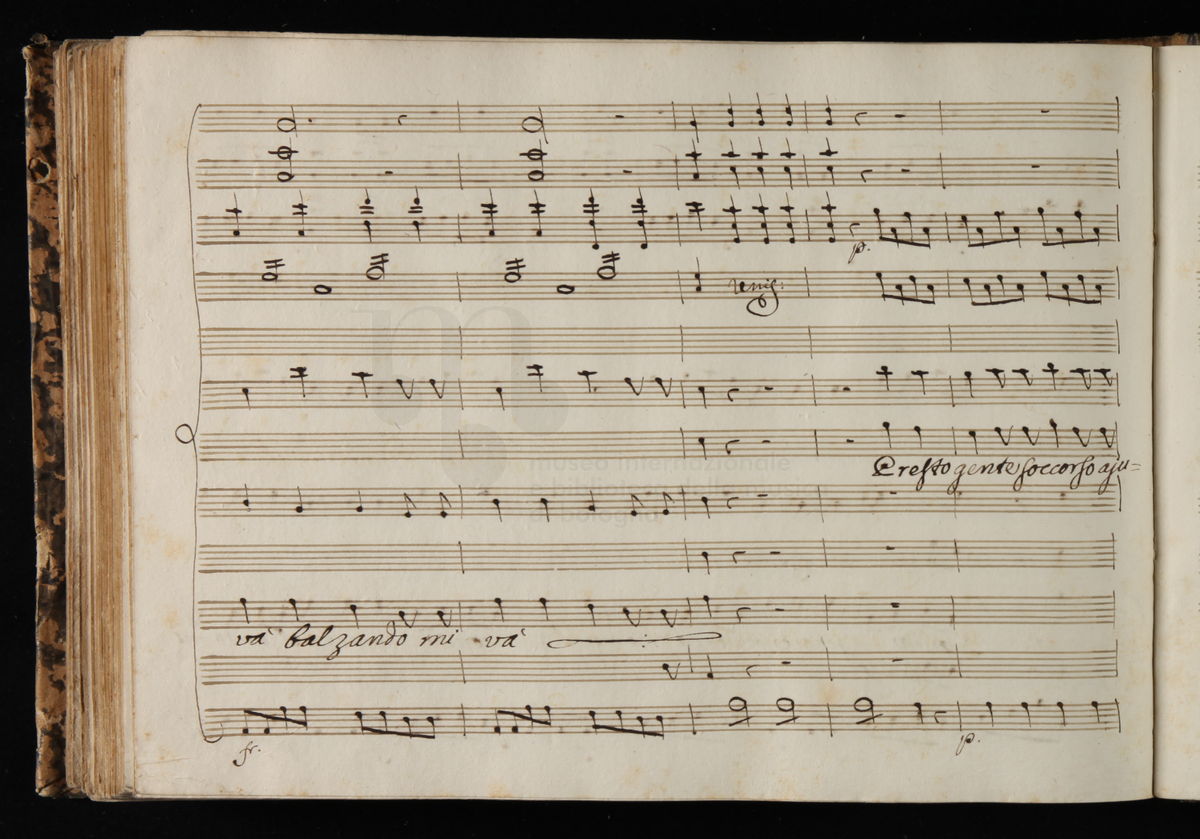 p.
Unis:
museo internazionale
Presto gente soccorso aju=
e biblioteca della musica
di bologna
và balzando mi và
fr.
p.